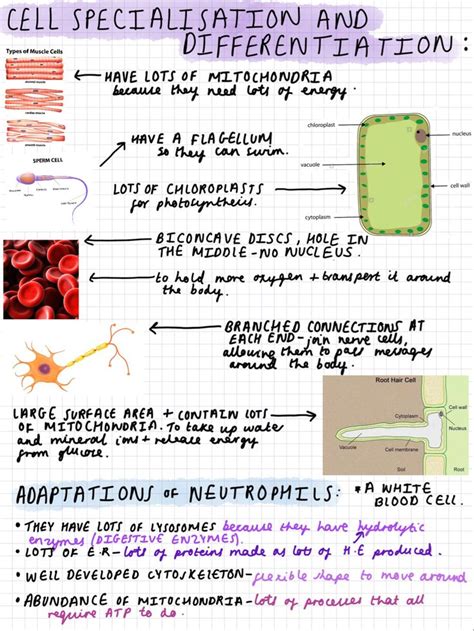 CELL SPECIALISATION AND
DIFFERENTIATION:
Types of Muscle Cells
HAVE LOTS OF MITOCHONDRIA
because they need lots of energy.
cardiac muscle
HAVE A FLAGELLUM
so they can swim.
SPERM CELL
LOTS OF CHLOROPLASTS
for photosynthesis.
chloroplast
nucleus
vacuole
cell wall
cytoplasm
BICONCAVE DISCS, HOLE IN
THE MIDDLE - NO NUCLEUS.
to hold more oxygen + transport it around
the body.
BRANCHED CONNECTIONS AT
EACH END - join nerve cells,
allowing them to pass messages
around the body.
LARGE SURFACE AREA + CONTAIN LOTS
OF MITOCHONDRIA. To take up water
and mineral ions + release energy
from glucose.
Root Hair Cell
Cell wall
Cytoplasm
Nucleus
Vacuole
Cell membrane
Soil
Root
ADAPTATIONS OF NEUTROPHILS:
*A WHITE
BLOOD CELL.
• THEY HAVE LOTS OF LYSOSOMES because they have hydrolytic
enzymes (DIGESTIVE ENZYMES).
• LOTS OF E.R - lots of proteins made as lots of H.E produced.
• WELL DEVELOPED CYTOSKELETON - flexible shape to move around
• ABUNDANCE OF MITOCHONDRIA - lots of processes that all
require ATP to do.